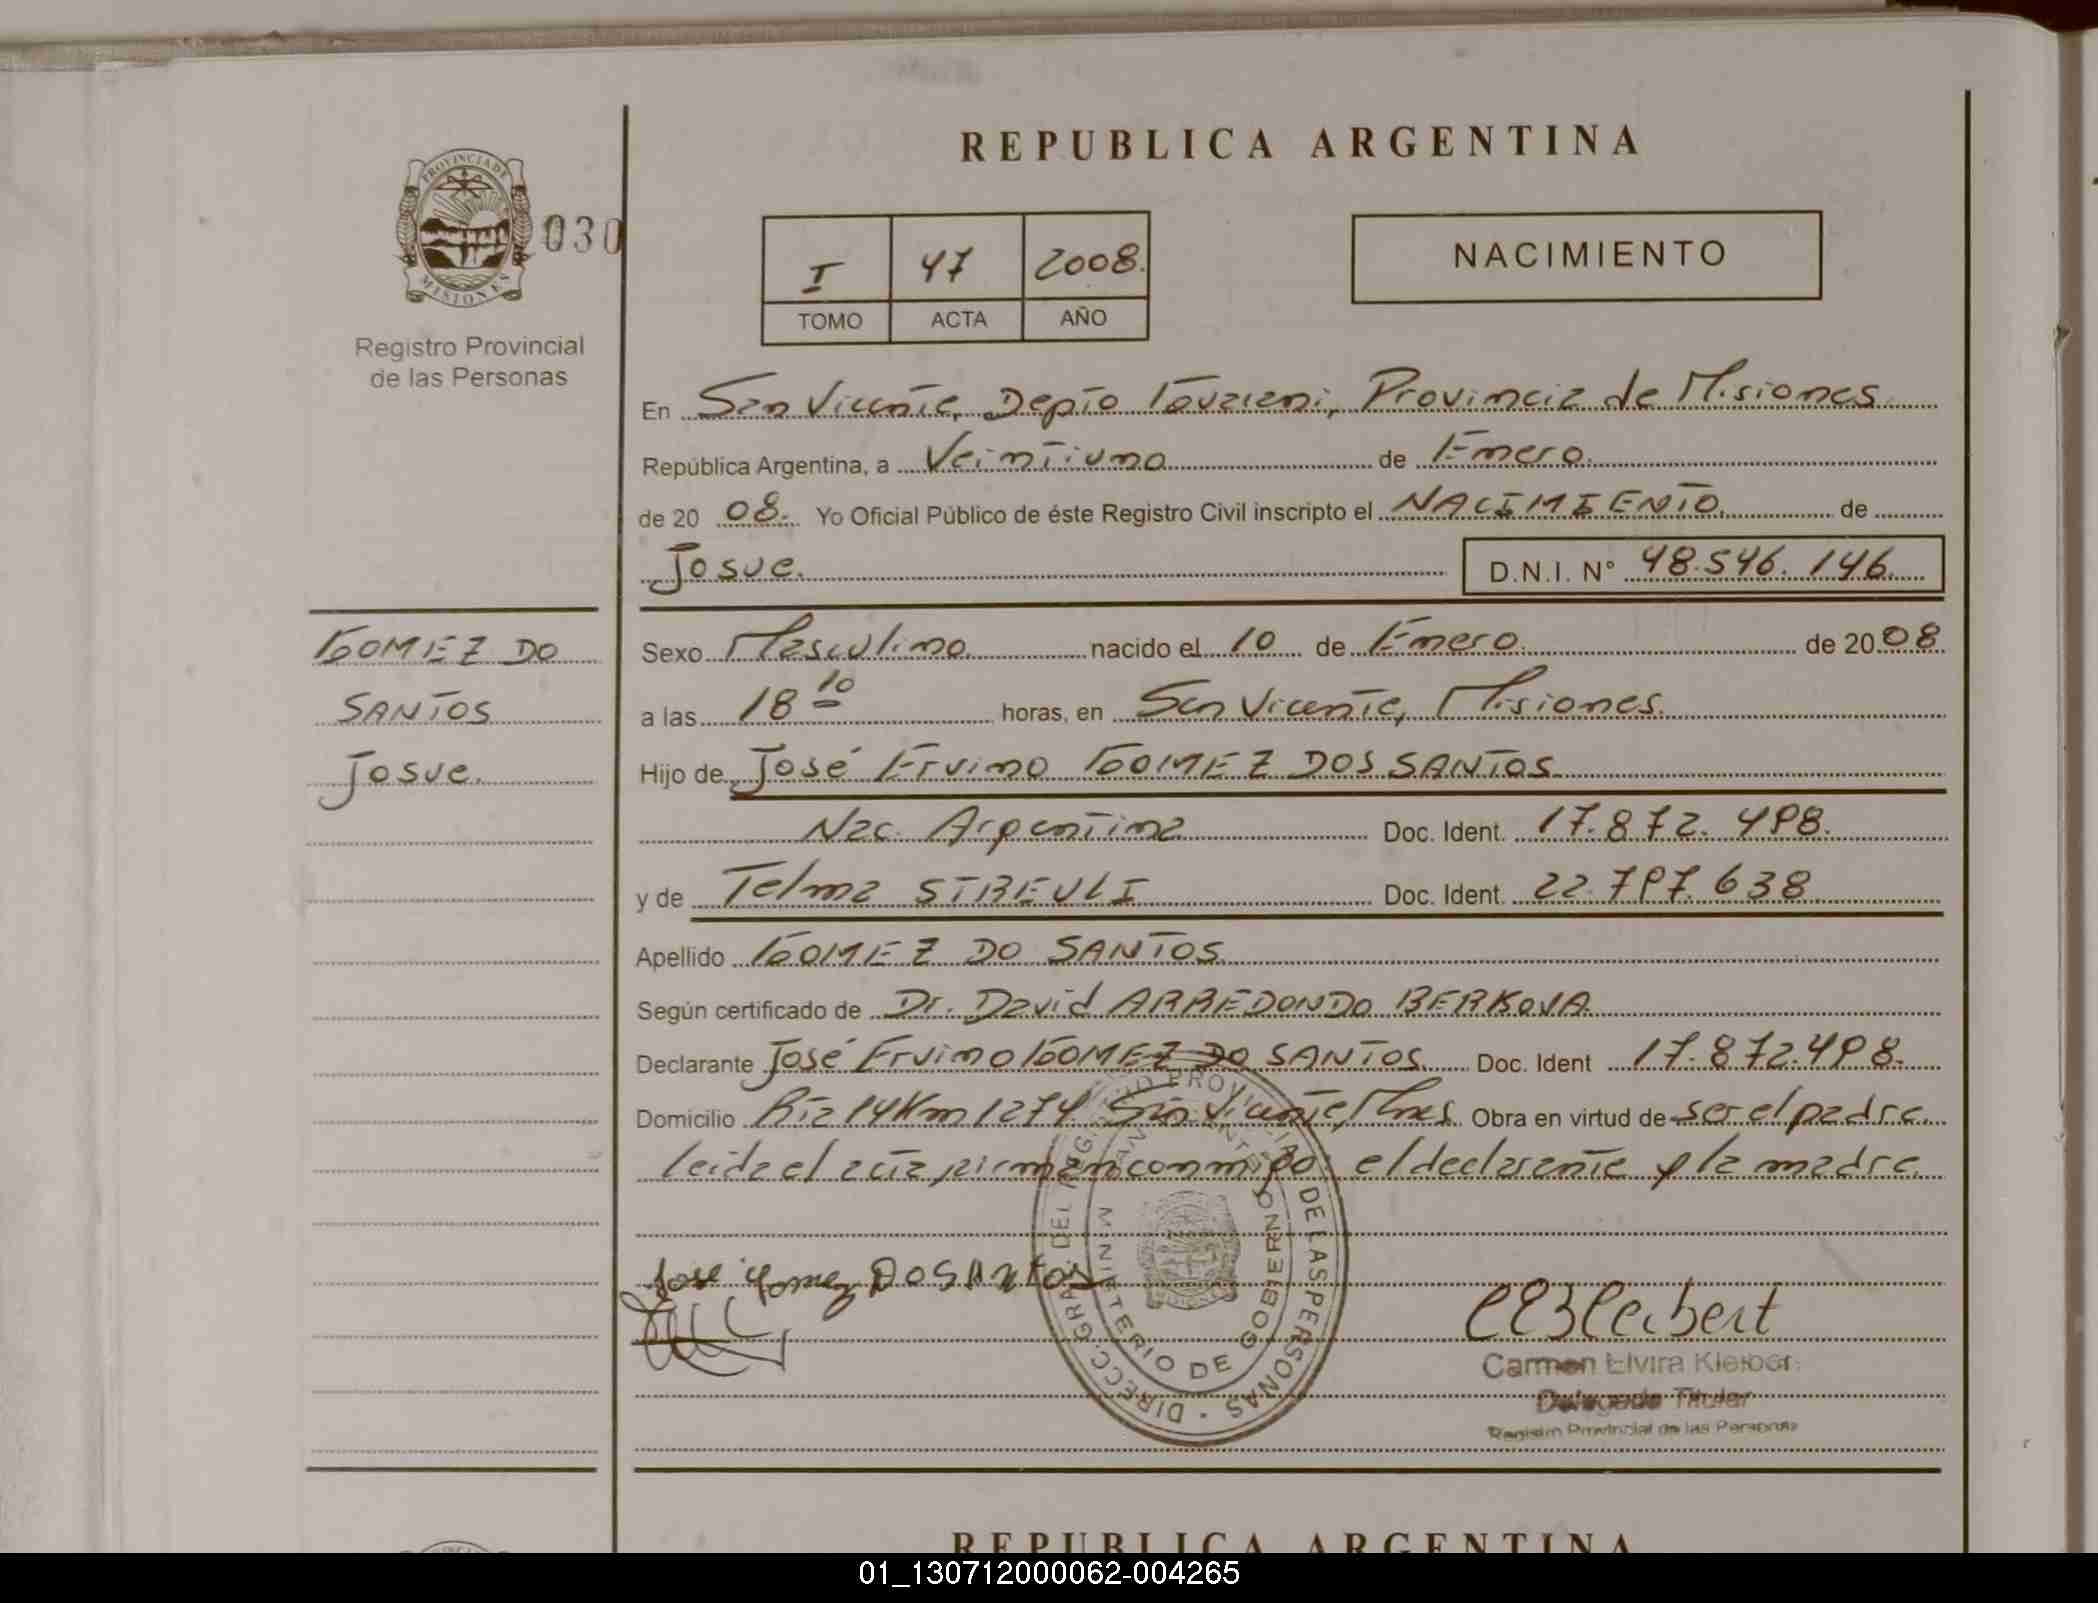 REPUBLICA ARGENTINA
PROVINCIA DE
MISIONES
030
Registro Provincial
de las Personas
I 47 2008.
TOMO ACTA AÑO
NACIMIENTO
En San Vicente, Depto Guarani, Provincia de Misiones
República Argentina, a Veintiuno de Enero.
de 20 08. Yo Oficial Público de éste Registro Civil inscripto el NACIMIENTO. de
Josue. D.N.I. N° 48.546.146.
GOMEZ DO
SANTOS
Josue.
Sexo Masculino nacido el 10 de Enero. de 20 08.
a las 18 10 horas, en San Vicente, Misiones.
Hijo de José Ervino GOMEZ DOS SANTOS
Nac. Argentina Doc. Ident. 17.872.498.
y de Telma STREULI Doc. Ident. 22.797.638
Apellido GOMEZ DO SANTOS
Según certificado de Dr. David ARREDONDO BERKOVA
Declarante José Ervino GOMEZ DO SANTOS Doc. Ident 17.872.498.
Domicilio Rta 14 Km 1274 San Vicente, Mnes Obra en virtud de ser el padre
leida el acta, firman conmigo el declarante y la madre.
Jose Gomez DOSANtOS
DIRECC. GRAL. DEL REGISTRO PROVINCIAL DE LAS PERSONAS
MINISTERIO DE GOBIERNO
Carmen Elvira Kleibert
Delegado Titular
Registro Provincial de las Personas
REPUBLICA ARGENTINA
01_130712000062-004265